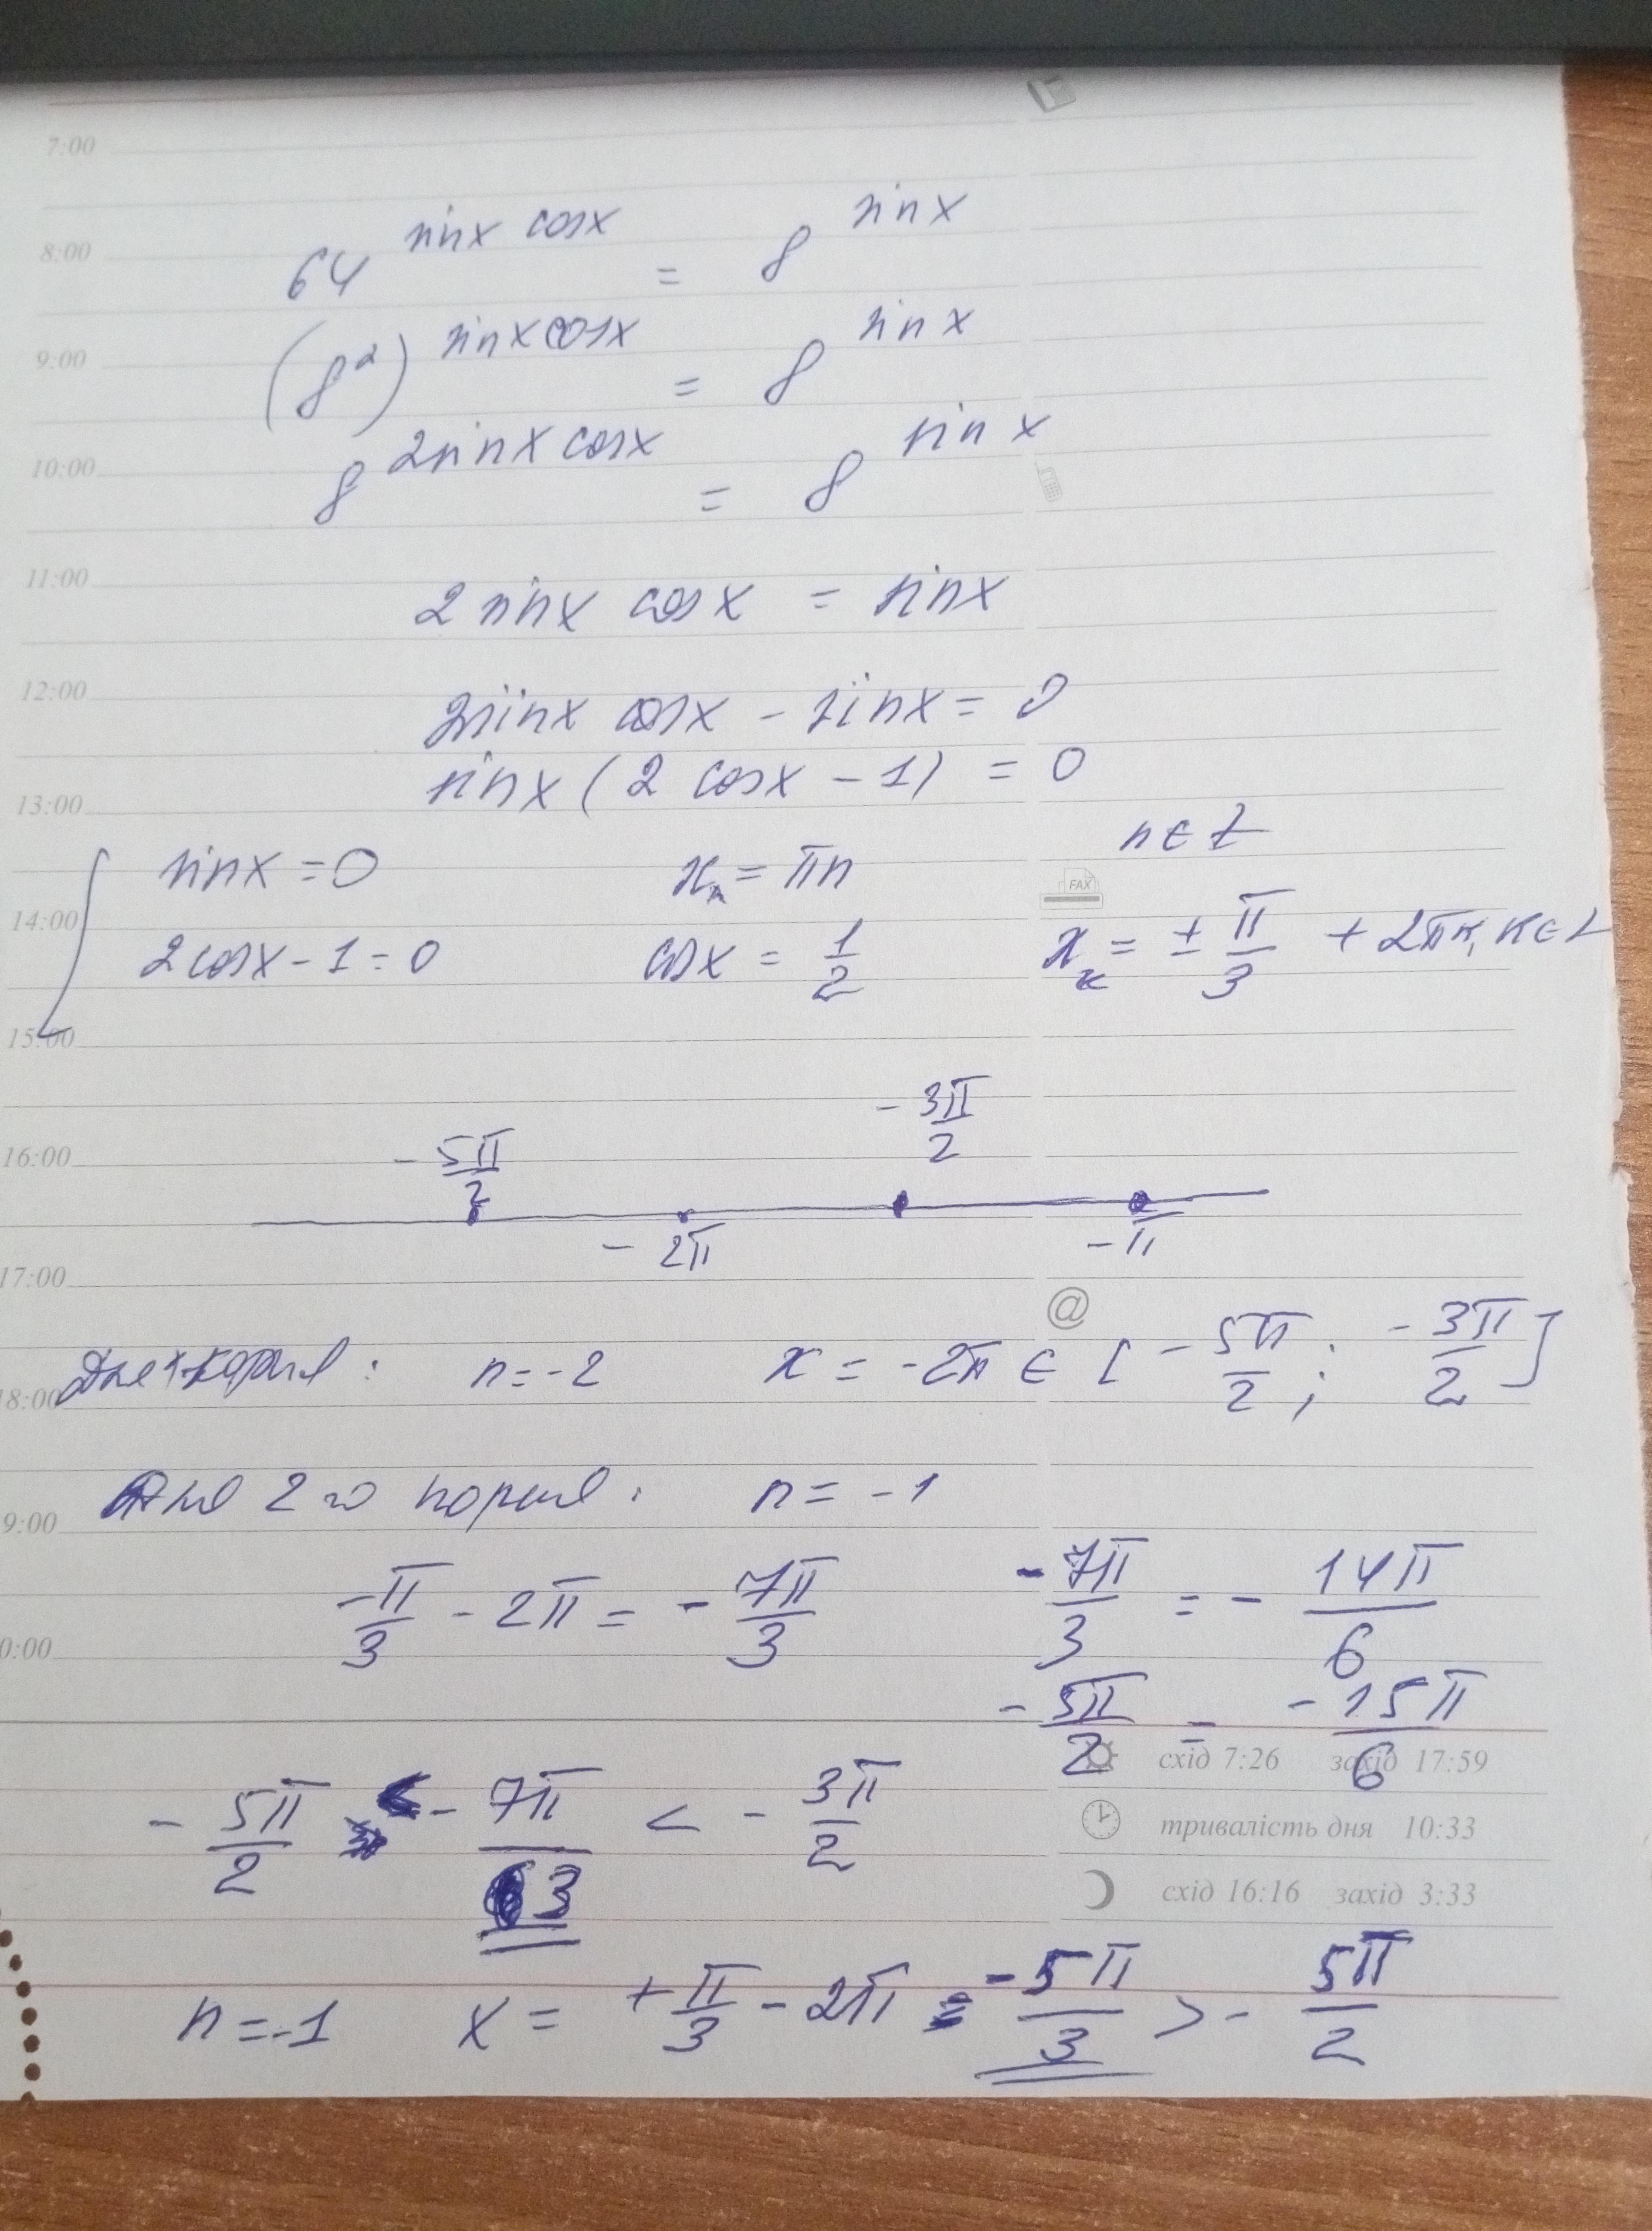 7:00
64^(sinx cosx) = 8^(sinx)
8:00
(8²)^(sinx cosx) = 8^(sinx)
9:00
8^(2sinx cosx) = 8^(sinx)
10:00
11:00
2 sinx cosx = sinx
12:00
2sinx cosx - sinx = 0
sinx (2 cosx - 1) = 0
13:00
sinx = 0 xₙ = πn n ∈ Z
FAX
14:00
2cosx - 1 = 0 cosx = 1/2 xₖ = ± π/3 + 2πк, к ∈ Z
15:00
- 5π/2 - 3π/2
16:00
- 2π - π
17:00
@
корня: n = -2 x = -2π ∈ [ - 5π/2 ; - 3π/2 ]
18:00
Для 2го корня: n = -1
9:00
-π/3 - 2π = - 7π/3 - 7π/3 = - 14π/6
0:00
- 5π/2 = - 15π/6
схід 7:26 захід 17:59
- 5π/2 < - 7π/3 < - 3π/2
тривалість дня 10:33
схід 16:16 захід 3:33
n = -1 x = + π/3 - 2π = - 5π/3 > - 5π/2